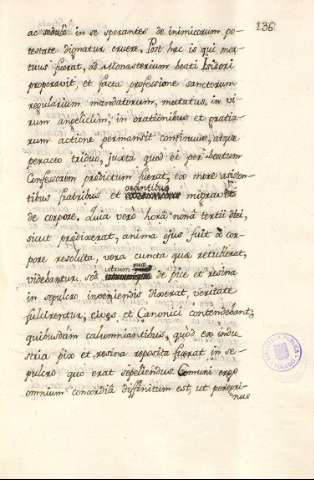 136
ac sedulo in se sperantes de inimicorum po-
testate dignatur eruere. Post hec is qui mor-
tuus fuerat, ad Monasterium beati Isidori
properavit, et facta professione sanctorum
regularium mandatorum, mutatus, in vi-
rum angelicum, in orationibus et gratia-
rum actione permansit continuus, atque
peracto triduo, juxta quod ei per beatum
Confessorem predictum fuerat, ex more
tibus fratribus et orantibus migravit
de corpore. Quia vero hora nona tertii diei,
sicut predixerat, anima ejus fuit a cor-
pore resoluta, vera cuncta que retulerat,
videbantur. sed utrum que de pice et resina
in sepulcro inveniendis dixerat, veritate
fulcirentur, cives et Canonici contendebant,
quibusdam calumniantibus, quod ex indu-
stria pix et resina reposita fuerat in se-
pulcro quo erat sepeliendus. Comuni ergo
omnium concordia diffinitum est, ut peregri-
nus